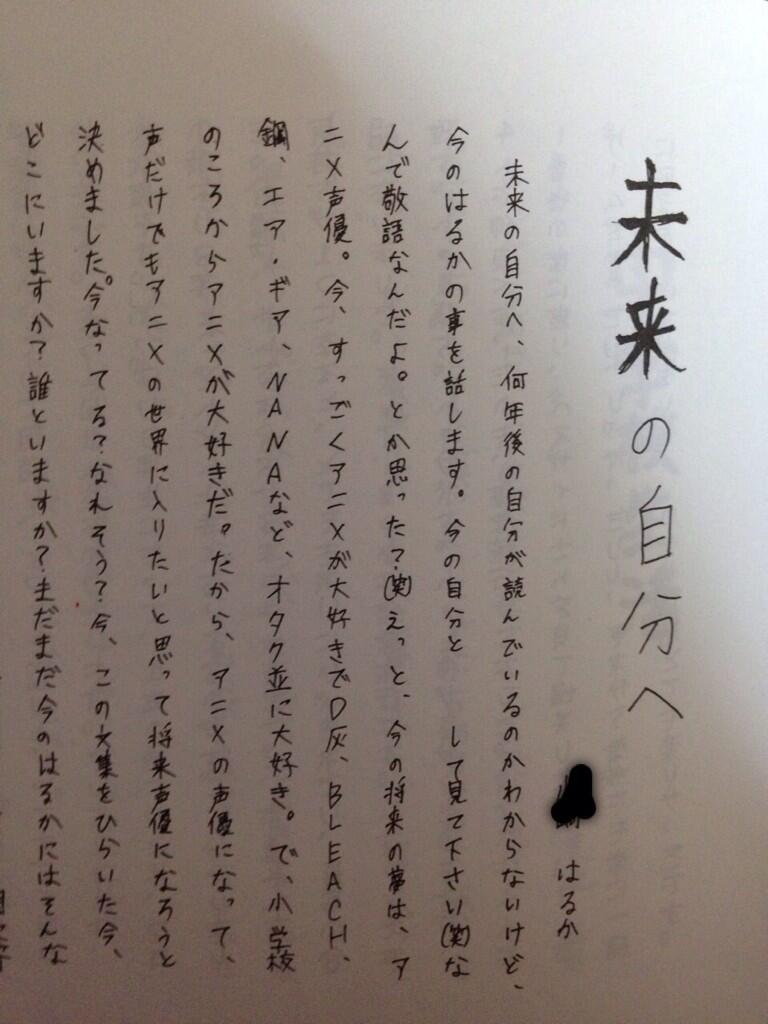 未来の自分へ
はるか
未来の自分へ、何年後の自分が読んでいるのかわからないけど、
今のはるかの事を話します。今の自分と　　して見て下さい(笑)な
んで敬語なんだよ。とか思った?(笑)えっと、今の将来の夢は、ア
ニメ声優。今、すっごくアニメが大好きでD灰、BLEACH、
鋼、エア・ギア、NANAなど、オタク並に大好き。で、小学校
のころからアニメが大好きだ。だから、アニメの声優になって、
声だけでもアニメの世界に入りたいと思って将来声優になろうと
決めました。今なってる?なれそう?今、この文集をひらいた今、
どこにいますか?誰といますか?まだまだ今のはるかにはそんな